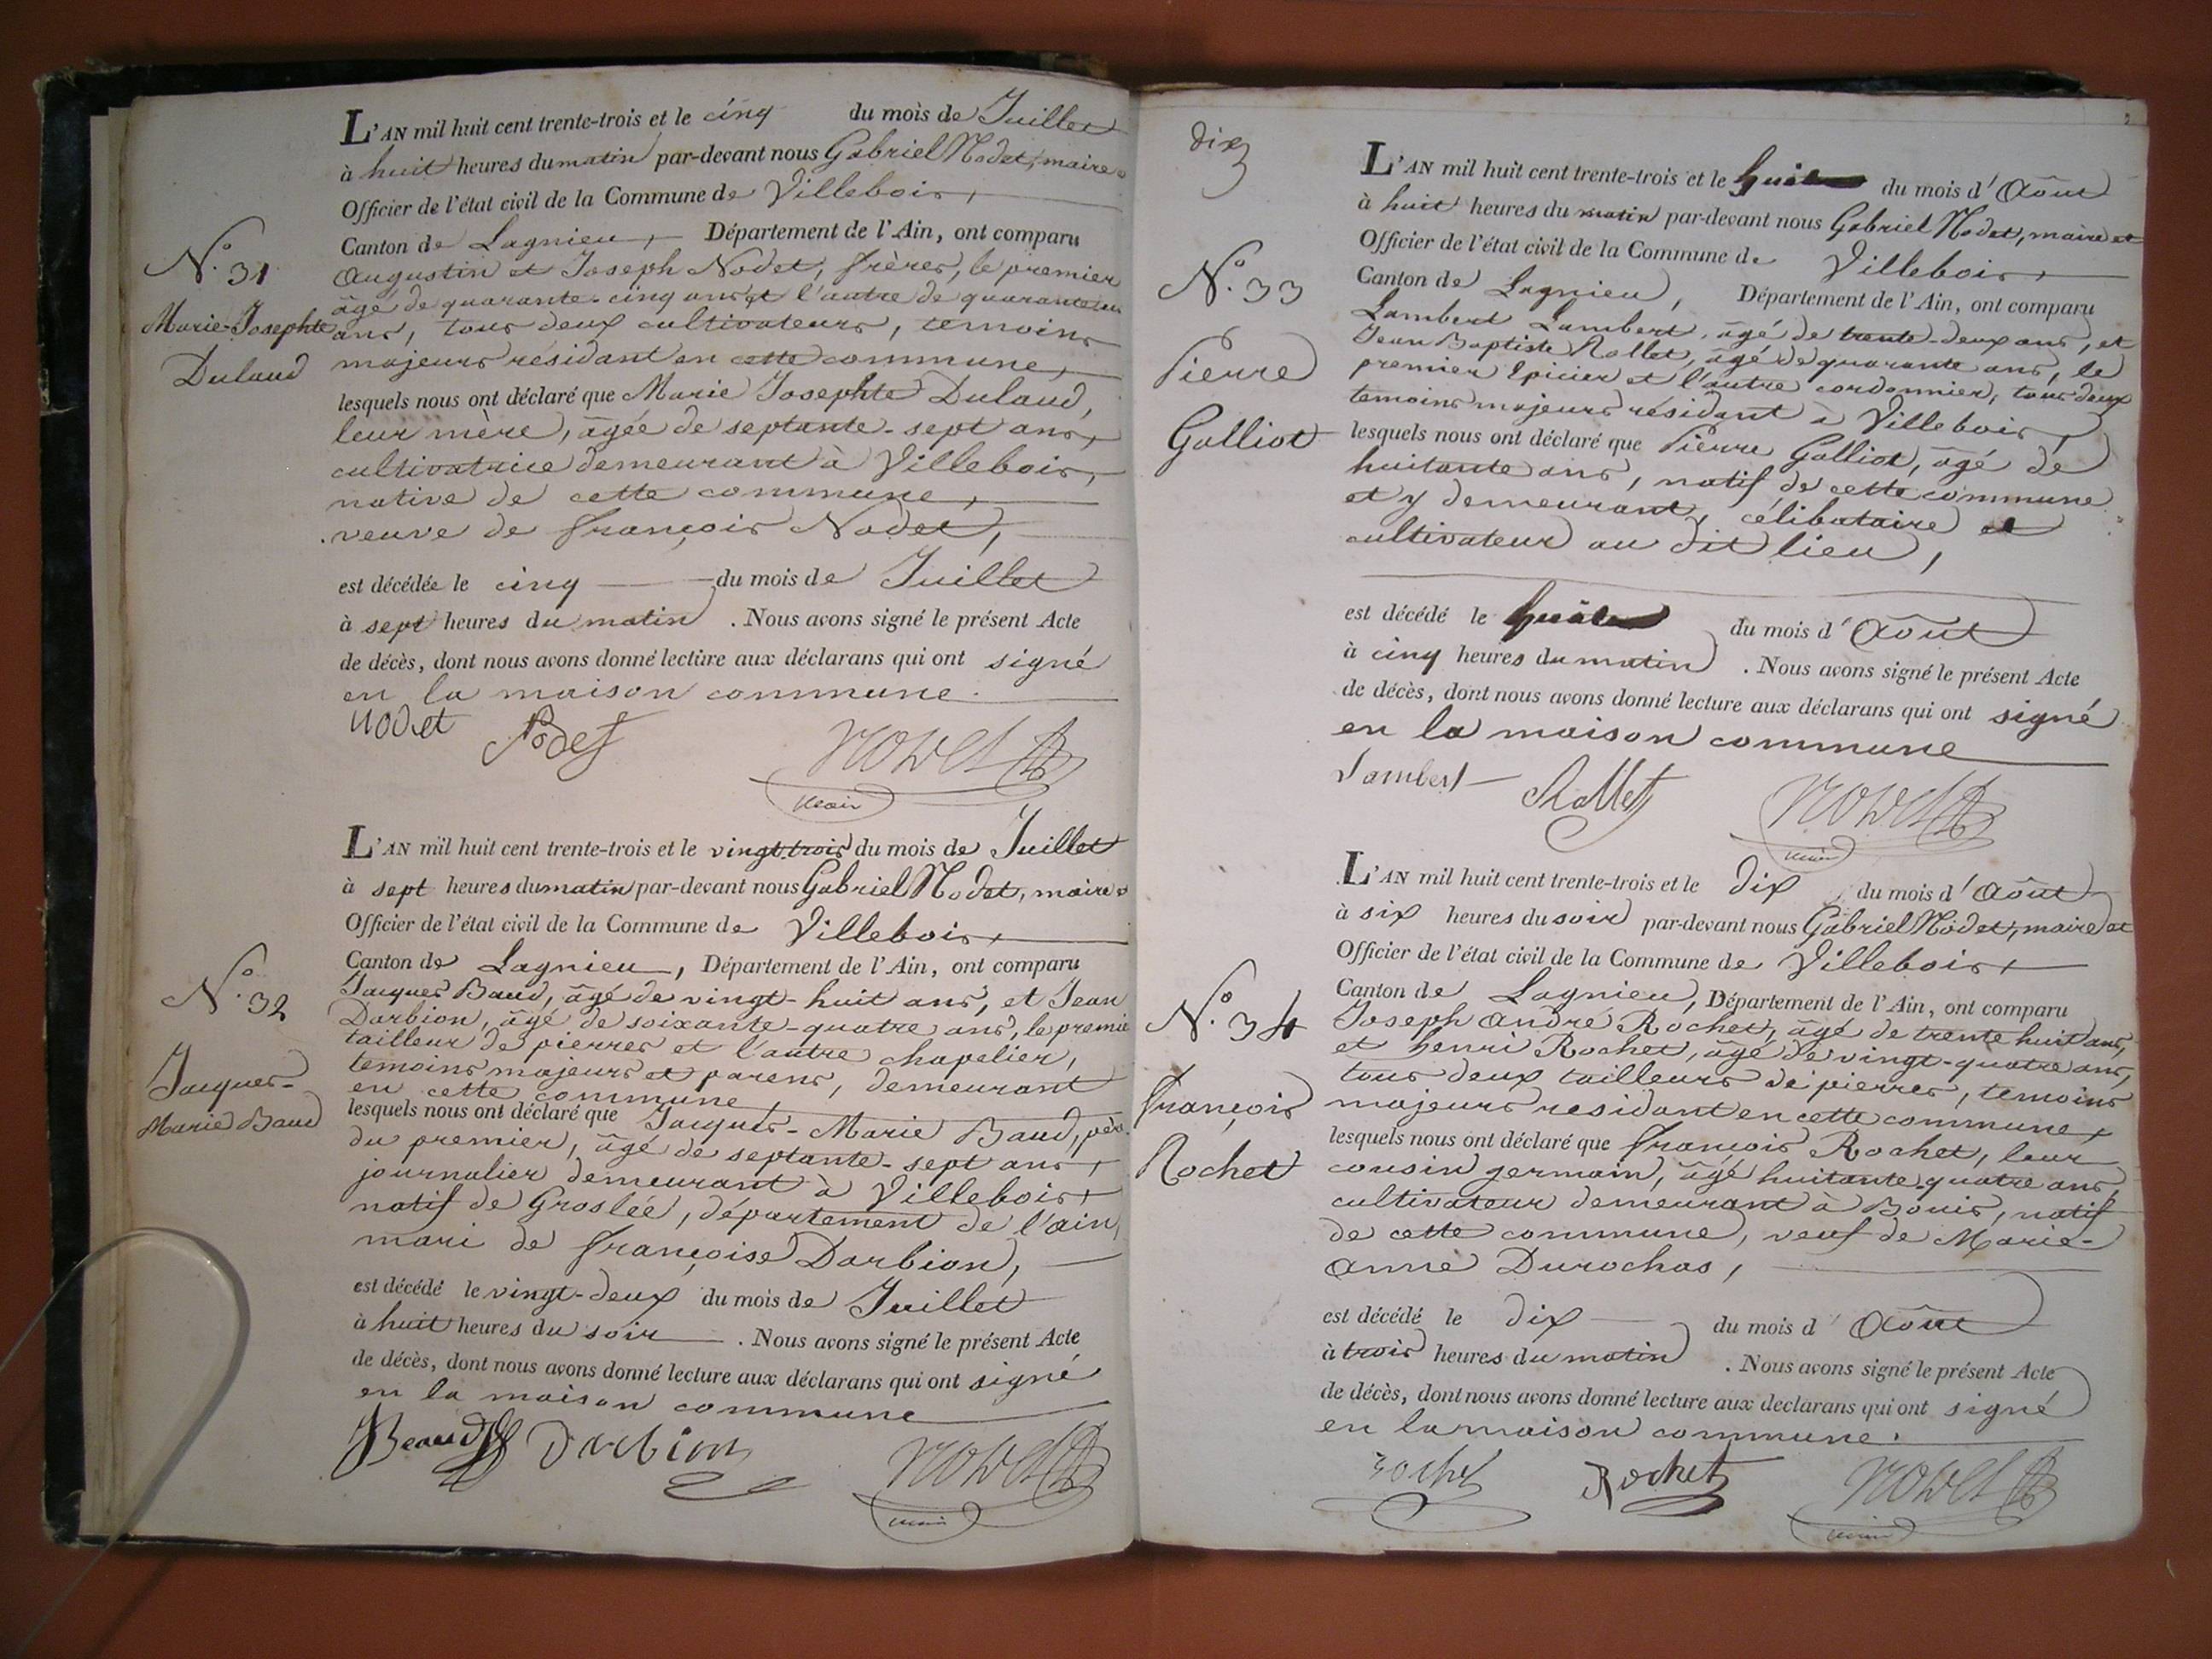 L'AN mil huit cent trente-trois et le cinq du mois de Juillet
à huit heures du matin par-devant nous Gabriel Nodet, maire
Officier de l'état civil de la Commune de Villebois,
Canton de Lagnieu, Département de l'Ain, ont comparu
Augustin et Joseph Nodet, frères, le premier
âgé de quarante-cinq ans et l'autre de quarante
ans, tous deux cultivateurs, temoins
majeurs résidant en cette commune,
lesquels nous ont déclaré que Marie Josephte Dulaud,
leur mère, âgée de septante-sept ans,
cultivatrice demeurant à Villebois,
native de cette commune,
veuve de françois Nodet,
est décédée le cinq du mois de Juillet
à sept heures du matin . Nous avons signé le présent Acte
de décès, dont nous avons donné lecture aux déclarans qui ont signé
en la maison commune.
Nodet Nodet Nodet
maire
N.° 31
Marie-Josephte
Dulaud
L'AN mil huit cent trente-trois et le vingt-trois du mois de Juillet
à sept heures du matin par-devant nous Gabriel Nodet, maire
Officier de l'état civil de la Commune de Villebois,
Canton de Lagnieu, Département de l'Ain, ont comparu
Jacques Baud, âgé de vingt-huit ans, et Jean
Darbion, âgé de soixante-quatre ans, le premie
tailleur de pierres et l'autre chapelier,
temoins majeurs et parens, demeurant
en cette commune,
lesquels nous ont déclaré que Jacques-Marie Baud, père
du premier, âgé de septante-sept ans,
journalier demeurant à Villebois,
natif de Groslée, département de l'ain,
mari de françoise Darbion,
est décédé le vingt-deux du mois de Juillet
à huit heures du soir . Nous avons signé le présent Acte
de décès, dont nous avons donné lecture aux déclarans qui ont signé
en la maison commune
Beaud Darbion Nodet
maire
N.° 32
Jacques-
Marie Baud
dix
L'AN mil huit cent trente-trois et le huit du mois d'Août
à huit heures du matin par-devant nous Gabriel Nodet, maire et
Officier de l'état civil de la Commune de Villebois,
Canton de Lagnieu, Département de l'Ain, ont comparu
Lambert Lambert, âgé de trente-deux ans, et
Jean Baptiste Rollet, âgé de quarante ans, le
premier Epicier et l'autre cordonnier, tous deux
temoins majeurs résidant à Villebois,
lesquels nous ont déclaré que Pierre Galliot, âgé de
huitante ans, natif de cette commune
et y demeurant, célibataire et
cultivateur au dit lieu,
est décédé le huit du mois d'Août
à cinq heures du matin . Nous avons signé le présent Acte
de décès, dont nous avons donné lecture aux déclarans qui ont signé
en la maison commune
Lambert Rollet Nodet
maire
N.° 33
Pierre
Galliot
L'AN mil huit cent trente-trois et le dix du mois d'Août
à six heures du soir par-devant nous Gabriel Nodet, maire et
Officier de l'état civil de la Commune de Villebois,
Canton de Lagnieu, Département de l'Ain, ont comparu
Joseph André Rochet, âgé de trente huit ans,
et henri Rochet, âgé de vingt-quatre ans,
tous deux tailleurs de pierres, temoins
majeurs residant en cette commune,
lesquels nous ont déclaré que françois Rochet, leur
cousin germain, âgé huitante-quatre ans,
cultivateur demeurant à Bouis, natif
de cette commune, veuf de Marie-
Anne Durochas,
est décédé le dix du mois d'Août
à trois heures du matin . Nous avons signé le présent Acte
de décès, dont nous avons donné lecture aux declarans qui ont signé
en la maison commune.
Rochet Rochet Nodet
maire
N.° 34
françois
Rochet